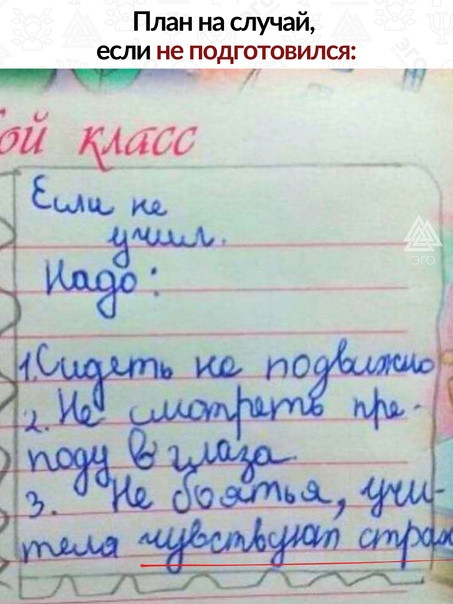 План на случай,
если не подготовился:
ой класс
Если не
учил.
Надо:
1. Сидеть не подвижно
2. Не смотреть пре-
поду в глаза.
3. Не боятья, учи-
теля чувствуют страх
ЭГО